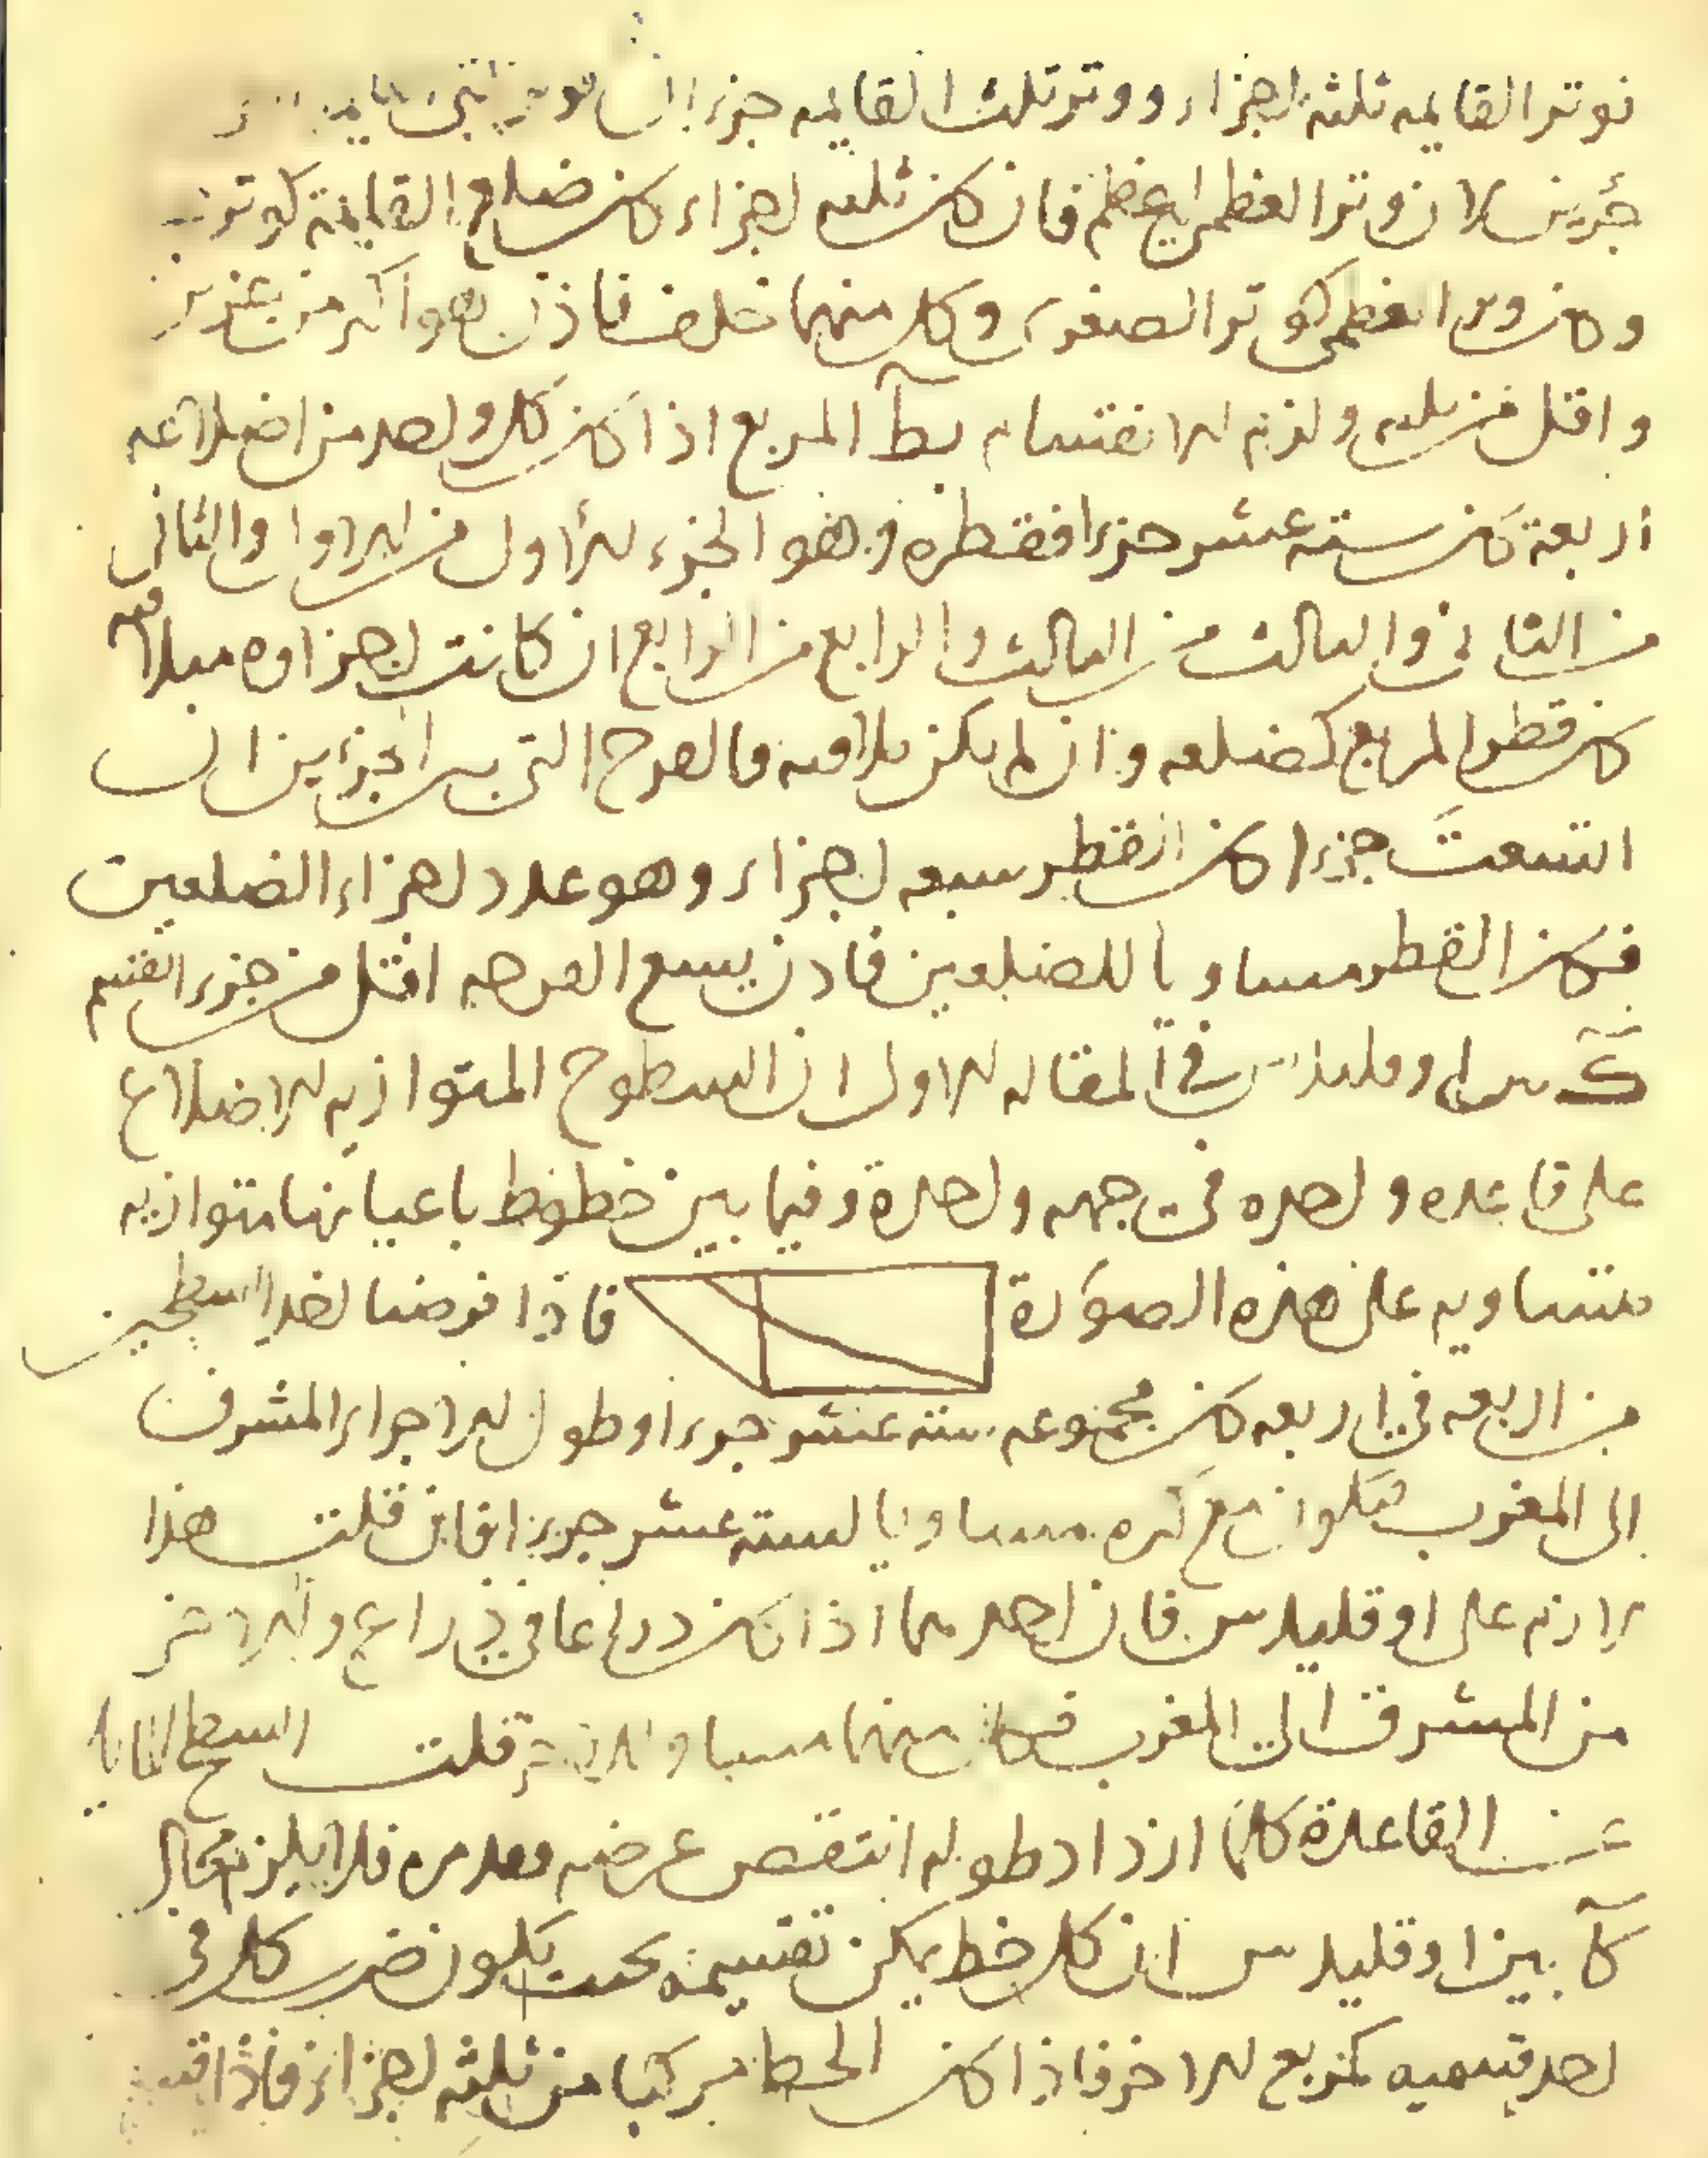 فوتر القايمه ثلثه اجزاء ووتر ثلث القايمه جزء
جزءين لان وتر العظمى اعظم فان كان ثلثه اجزاء كان ضلع القايمة كوتر
وكان وتر العظمى كوتر الصغرى وكل منهما خلف فاذن هو اكبر من
واقل من ثلثه ولزم الانقسام يط المربع اذا كان كل واحد من اضلاعه
اربعة كان ستة عشر جزءا فقطره وهو الجزء الأول من الاول والثاني
من الثاني والثالث من الثالث والرابع من الرابع ان كانت اجزاوه متلاقيه
كان قطر المربع كضلعه وان لم يكن متلاقيه فالفرج التي بين الجزءين ان
اتسعت جزءا كان القطر سبعه اجزاء وهو عدد اجزاء الضلعين
فكان القطر مساويا للضلعين فاذن يسع الفرجه اقل من جزء انقسم
ك بين اوقليدس في المقاله الاولى ان السطوح المتوازيه الاضلاع
على قاعده واحده في جهه واحدة وفيما بين خطوط باعيانها متوازيه
متساويه على هذه الصورة فاذا فرضنا احد السطحين
من اربعه في اربعه كان مجموعه سته عشر جزءا وطول الاخر من المشرق
الى المغرب فيكون مع كبره مساويا لسته عشر جزءا فان قلت هذا
لازم على اوقليدس فان احدهما اذا كان ذراعا في ذراع والاخر
من المشرق الى المغرب فكل منهما مساو للاخر قلت السطح المايل
عن القاعدة كلما ازداد طوله انتقص عرضه فلا يلزم محال
كآ بين اوقليدس ان كل خط يمكن تقسيمه بحيث يكون ضرب كله في
احد قسميه كمربع الاخر فاذا كان الخط مركبا من ثلثه اجزاء فاذا